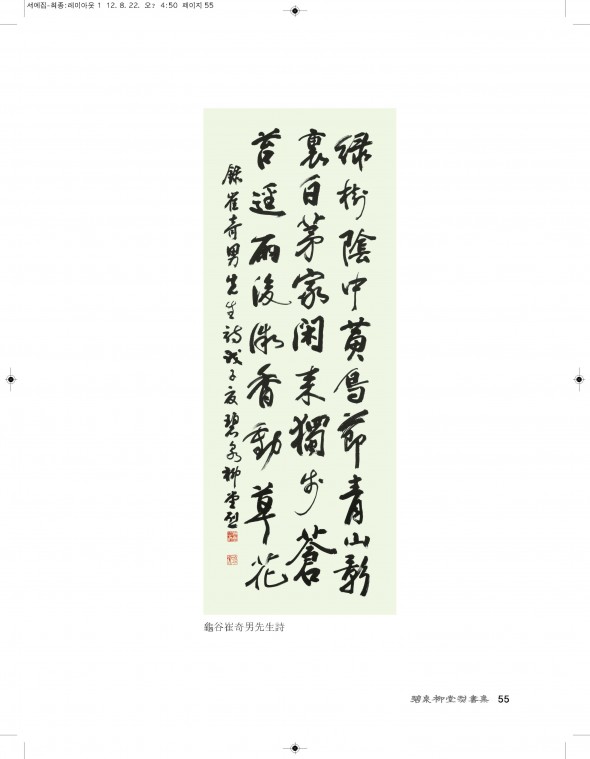 서예집-최종:레이아웃 1 12. 8. 22. 오? 4:50 페이지 55
綠樹陰中黃鳥節青山影
裏白茅家閑來獨步蒼
苔逕雨後微香動草花
錄崔奇男先生詩戊子夏碧泉柳堂烈
龜谷崔奇男先生詩
碧泉柳堂烈書集 55